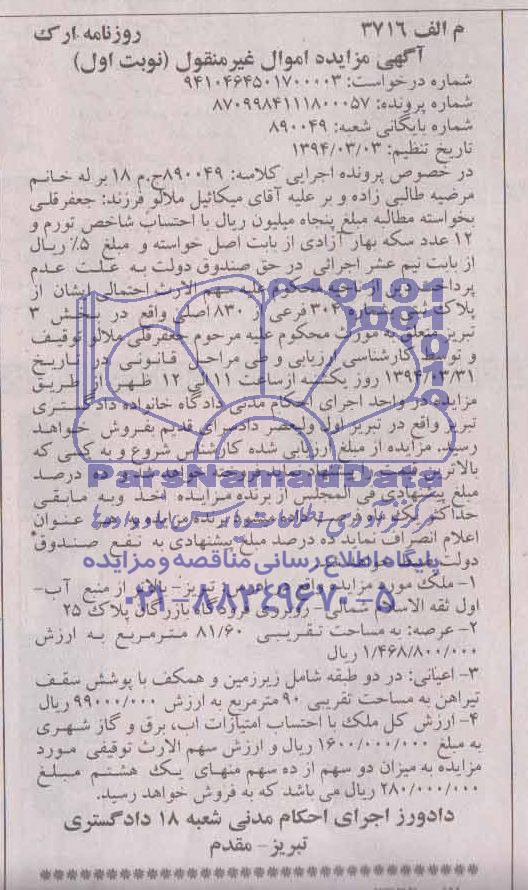 م الف ۳۷۱۶ روزنامه ارک
آگهی مزایده اموال غیرمنقول (نوبت اول)
شماره درخواست: ۹۴۱۰۴۶۴۵۰۱۷۰۰۰۰۳
شماره پرونده: ۸۷۰۹۹۸۴۱۱۱۸۰۰۰۵۷
شماره بایگانی شعبه: ۸۹۰۰۴۹
تاریخ تنظیم: ۱۳۹۴/۰۳/۰۳
در خصوص پرونده اجرایی کلاسه: ۸۹۰۰۴۹ج.م ۱۸ بر له خانم
مرضیه طالبی زاده و بر علیه آقای میکائیل ملالو فرزند: جعفرقلی
بخواسته مطالبه مبلغ پنجاه میلیون ریال با احتساب شاخص تورم و
۱۲ عدد سکه بهار آزادی از بابت اصل خواسته و مبلغ ۵٪ ریال
از بابت نیم عشر اجرائی در حق صندوق دولت به علت عدم
پرداخت دین از ناحیه محکوم علیه سهم الارث احتمالی ایشان از
پلاک ثبتی شماره ۳۰۴ فرعی از ۸۳۰ اصلی واقع در بخش ۳
تبریز متعلق به مورث محکوم علیه مرحوم جعفرقلی ملالو توقیف
و توسط کارشناسی ارزیابی و طی مراحل قانونی در تاریخ
۱۳۹۴/۰۳/۳۱ روز یکشنبه از ساعت ۱۱ الی ۱۲ ظهر از طریق
مزایده در واحد اجرای احکام مدنی دادگاه خانواده دادگستری
تبریز واقع در تبریز اول ولیعصر دادسرای قدیم بفروش خواهد
رسید. مزایده از مبلغ ارزیابی شده کارشناس شروع و به کسی که
بالاترین قیمت را پیشنهاد نماید فروخته خواهد شد و ده درصد
مبلغ پیشنهادی فی المجلس از برنده مزایده اخذ و به مابقی
حداکثر یک ماه فرصت داده میشود برنده مزایده به هر عنوان
اعلام انصراف نماید ده درصد مبلغ پیشنهادی به نفع صندوق
دولت ضبط خواهد شد.
۱- ملک مورد مزایده واقع در تبریز بالاتر از منبع آب-
اول ثقه الاسلام شمالی- روبروی فروشگاه بازرگان پلاک ۲۵
۲- عرصه: به مساحت تقریبی ۸۱/۶۰ مترمربع به ارزش
۱/۴۶۸/۸۰۰/۰۰۰ ریال
۳- اعیانی: در دو طبقه شامل زیرزمین و همکف با پوشش سقف
تیرآهن به مساحت تقریبی ۹۰ مترمربع به ارزش ۹۹۰۰۰/۰۰۰ ریال
۴- ارزش کل ملک با احتساب امتیازات آب، برق و گاز شهری
به مبلغ ۱۶۰۰/۰۰۰/۰۰۰ ریال و ارزش سهم الارث توقیفی مورد
مزایده به میزان دو سهم از ده سهم منهای یک هشتم مبلغ
۲۸۰/۰۰۰/۰۰۰ ریال می باشد که به فروش خواهد رسید.
دادورز اجرای احکام مدنی شعبه ۱۸ دادگستری
تبریز- مقدم
ParsNamadData
پایگاه اطلاع رسانی مناقصه و مزایده
۰۲۱-۸۸۳۴۹۶۷۰-۵